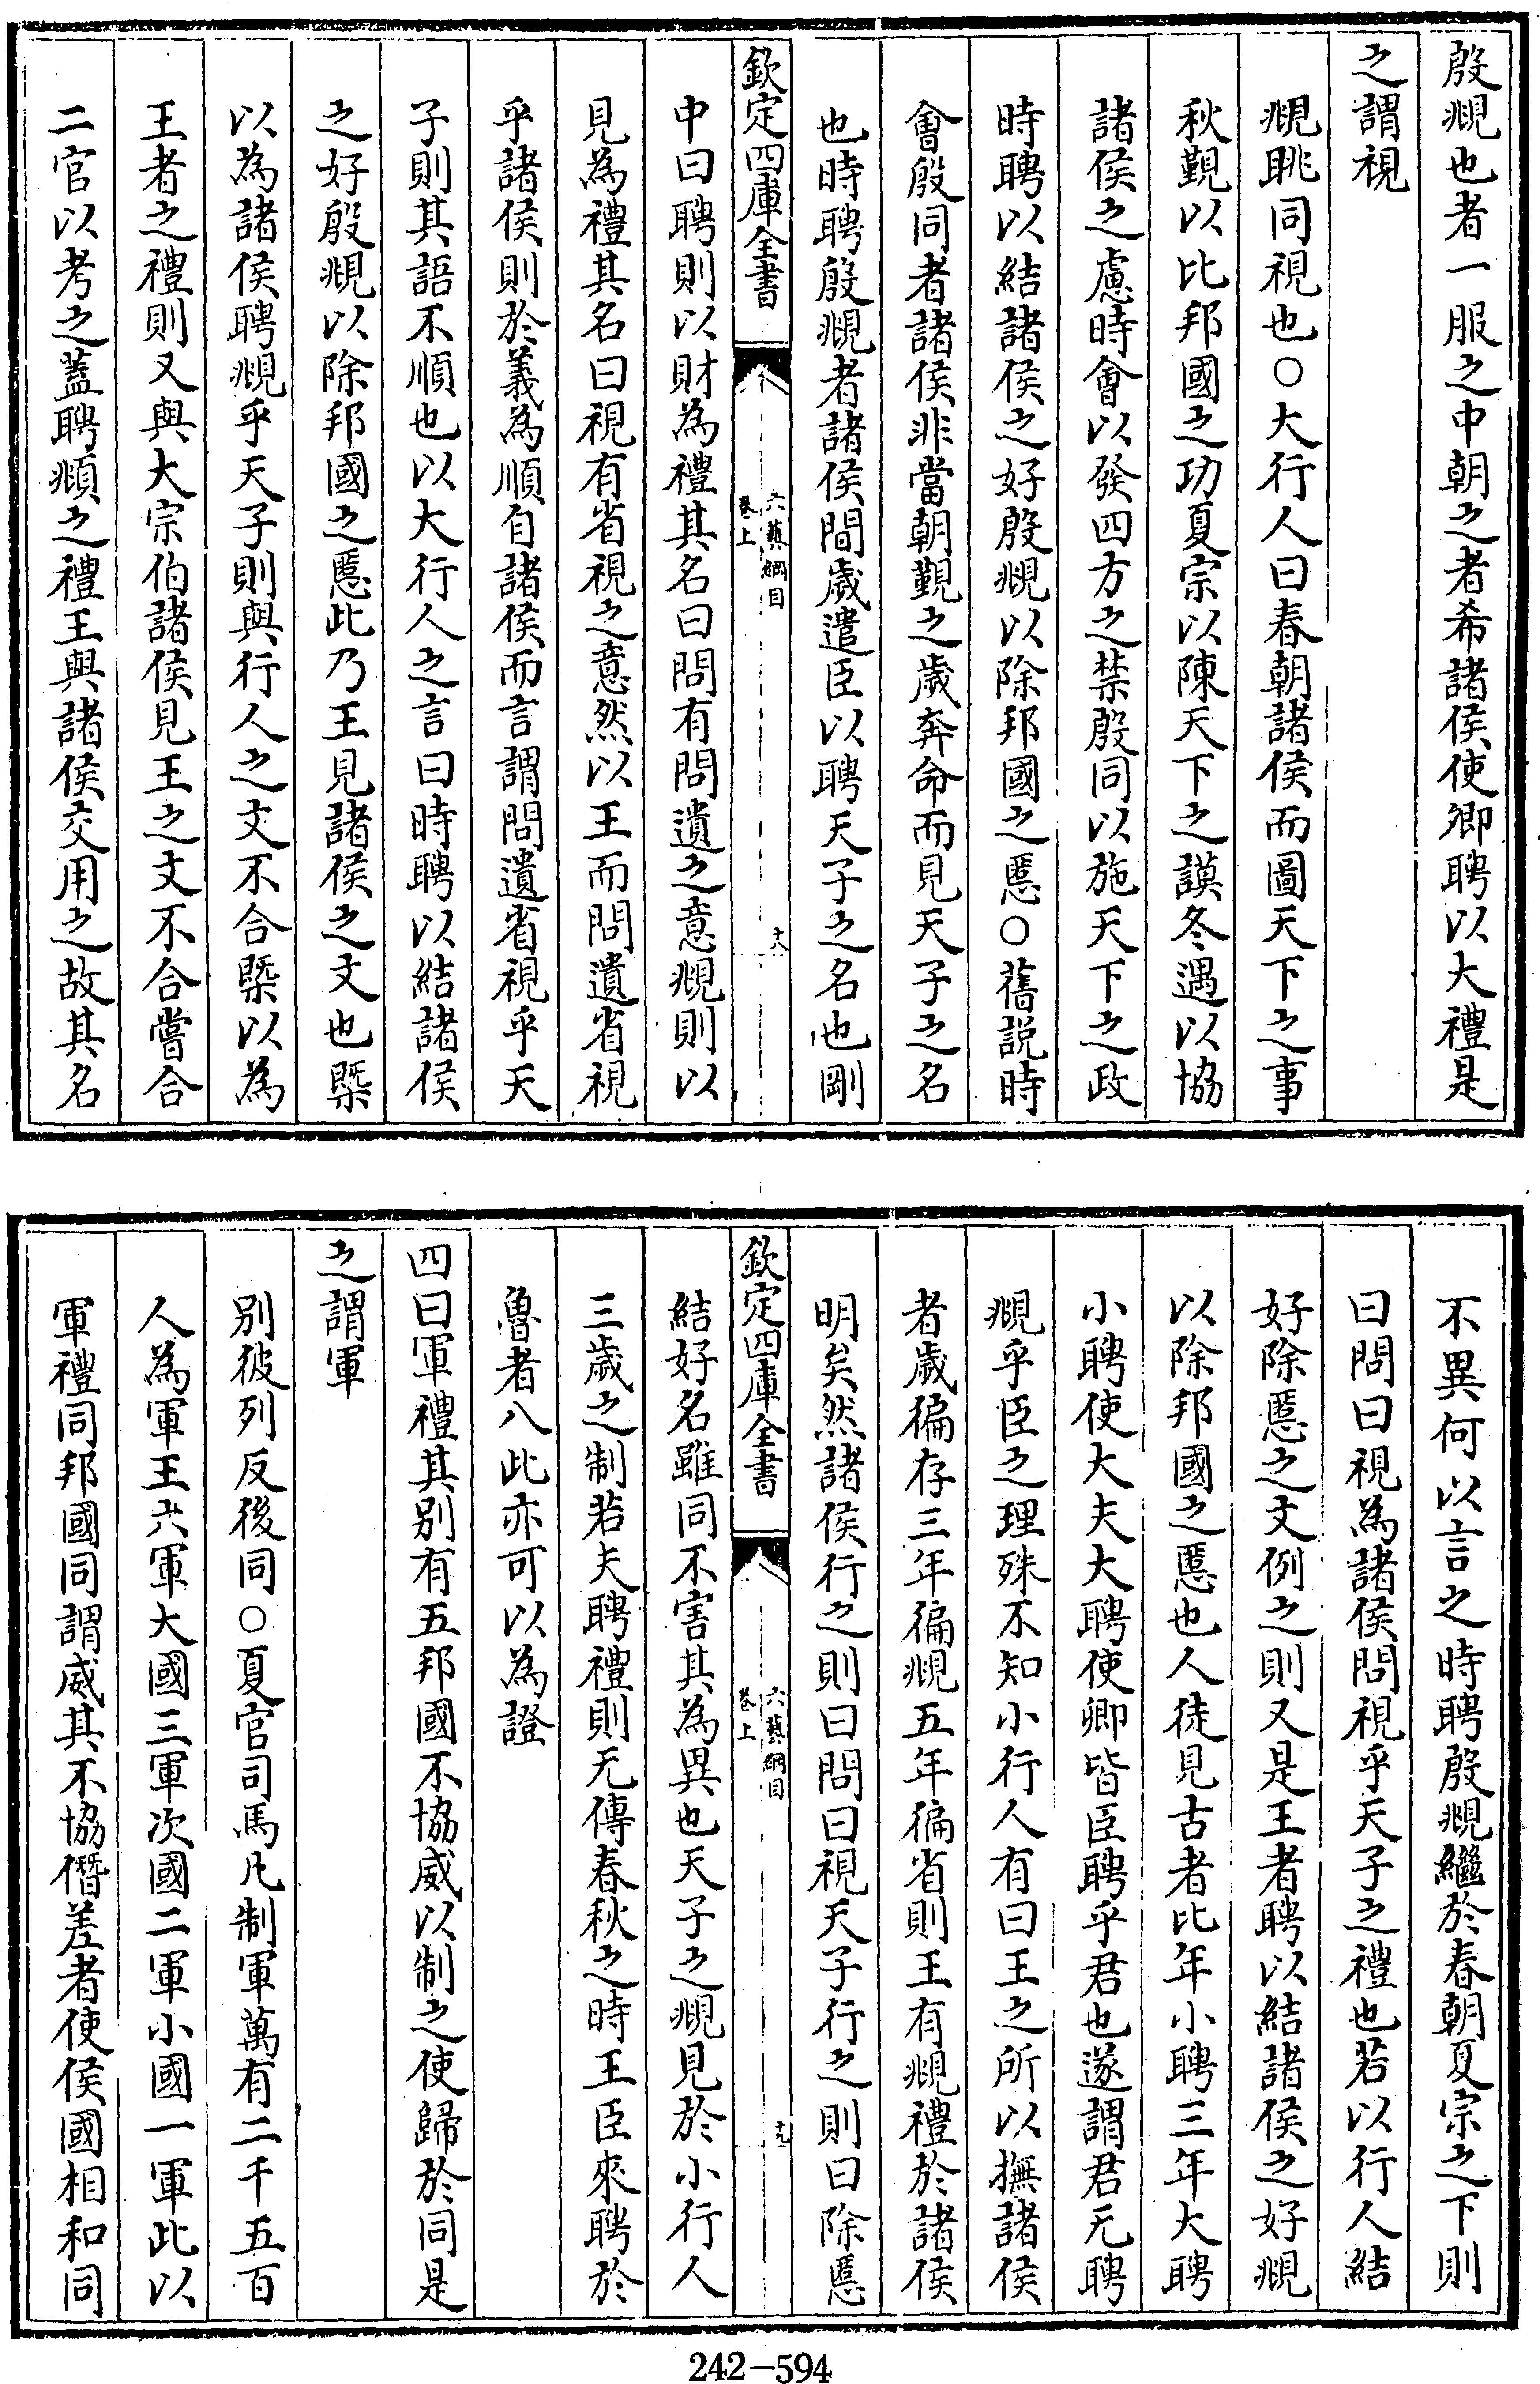 殷覜也者一服之中朝之者希諸侯使卿聘以大禮是
之謂視
覜眺同視也○大行人曰春朝諸侯而圖天下之事
秋覲以比邦國之功夏宗以陳天下之謨冬遇以協
諸侯之慮時會以發四方之禁殷同以施天下之政
時聘以結諸侯之好殷覜以除邦國之慝○舊說時
會殷同者諸侯非當朝覲之歲奔命而見天子之名
也時聘殷覜者諸侯間歲遣臣以聘天子之名也剛
欽定四庫全書
六藝綱目
卷上
十八
中曰聘則以財為禮其名曰問有問遺之意覜則以
見為禮其名曰視有省視之意然以王而問遺省視
乎諸侯則於義為順自諸侯而言謂問遺省視乎天
子則其語不順也以大行人之言曰時聘以結諸侯
之好殷覜以除邦國之慝此乃王見諸侯之文也槩
以為諸侯聘覜乎天子則與行人之文不合槩以為
王者之禮則又與大宗伯諸侯見王之文不合嘗合
二官以考之蓋聘頫之禮王與諸侯交用之故其名
不異何以言之時聘殷覜繼於春朝夏宗之下則
曰問曰視為諸侯問視乎天子之禮也若以行人結
好除慝之文例之則又是王者聘以結諸侯之好覜
以除邦國之慝也人徒見古者比年小聘三年大聘
小聘使大夫大聘使卿皆臣聘乎君也遂謂君无聘
覜乎臣之理殊不知小行人有曰王之所以撫諸侯
者歲徧存三年徧覜五年徧省則王有覜禮於諸侯
明矣然諸侯行之則曰問曰視天子行之則曰除慝
欽定四庫全書
六藝綱目
卷上
十九
結好名雖同不害其為異也天子之覜見於小行人
三歲之制若夫聘禮則无傳春秋之時王臣來聘於
魯者八此亦可以為證
四曰軍禮其别有五邦國不協威以制之使歸於同是
之謂軍
别彼列反後同○夏官司馬凡制軍萬有二千五百
人為軍王六軍大國三軍次國二軍小國一軍此以
軍禮同邦國同謂威其不協僭差者使侯國相和同
242-594